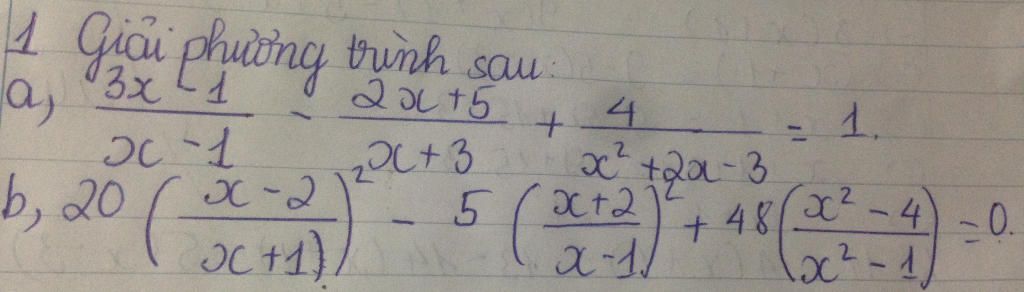 1 Giải phương trình sau:
a, (3x - 1)/(x - 1) - (2x + 5)/(x + 3) + 4/(x² + 2x - 3) = 1.
b, 20 ((x - 2)/(x + 1))² - 5 ((x + 2)/(x - 1))² + 48 ((x² - 4)/(x² - 1)) = 0.